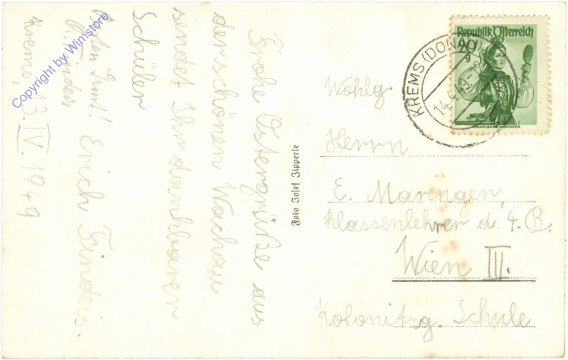 Frohe Ostergrüße aus
der schönen Wachau
sendet Ihr dankbarer
Schüler
Erich
Krems, 13. IV. 1949
Copyright by Wimstore
Foto Josef Zipperle
Republik Österreich
KREMS (DONAU)
Wohlg.
Herrn
E. Maringen,
Klassenlehrer d. 4. B.
Wien III.
Kolonitz g. Schule